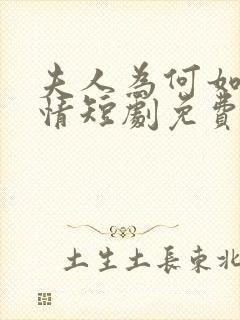 夫人為何如
情短劇免費
土生土長東北